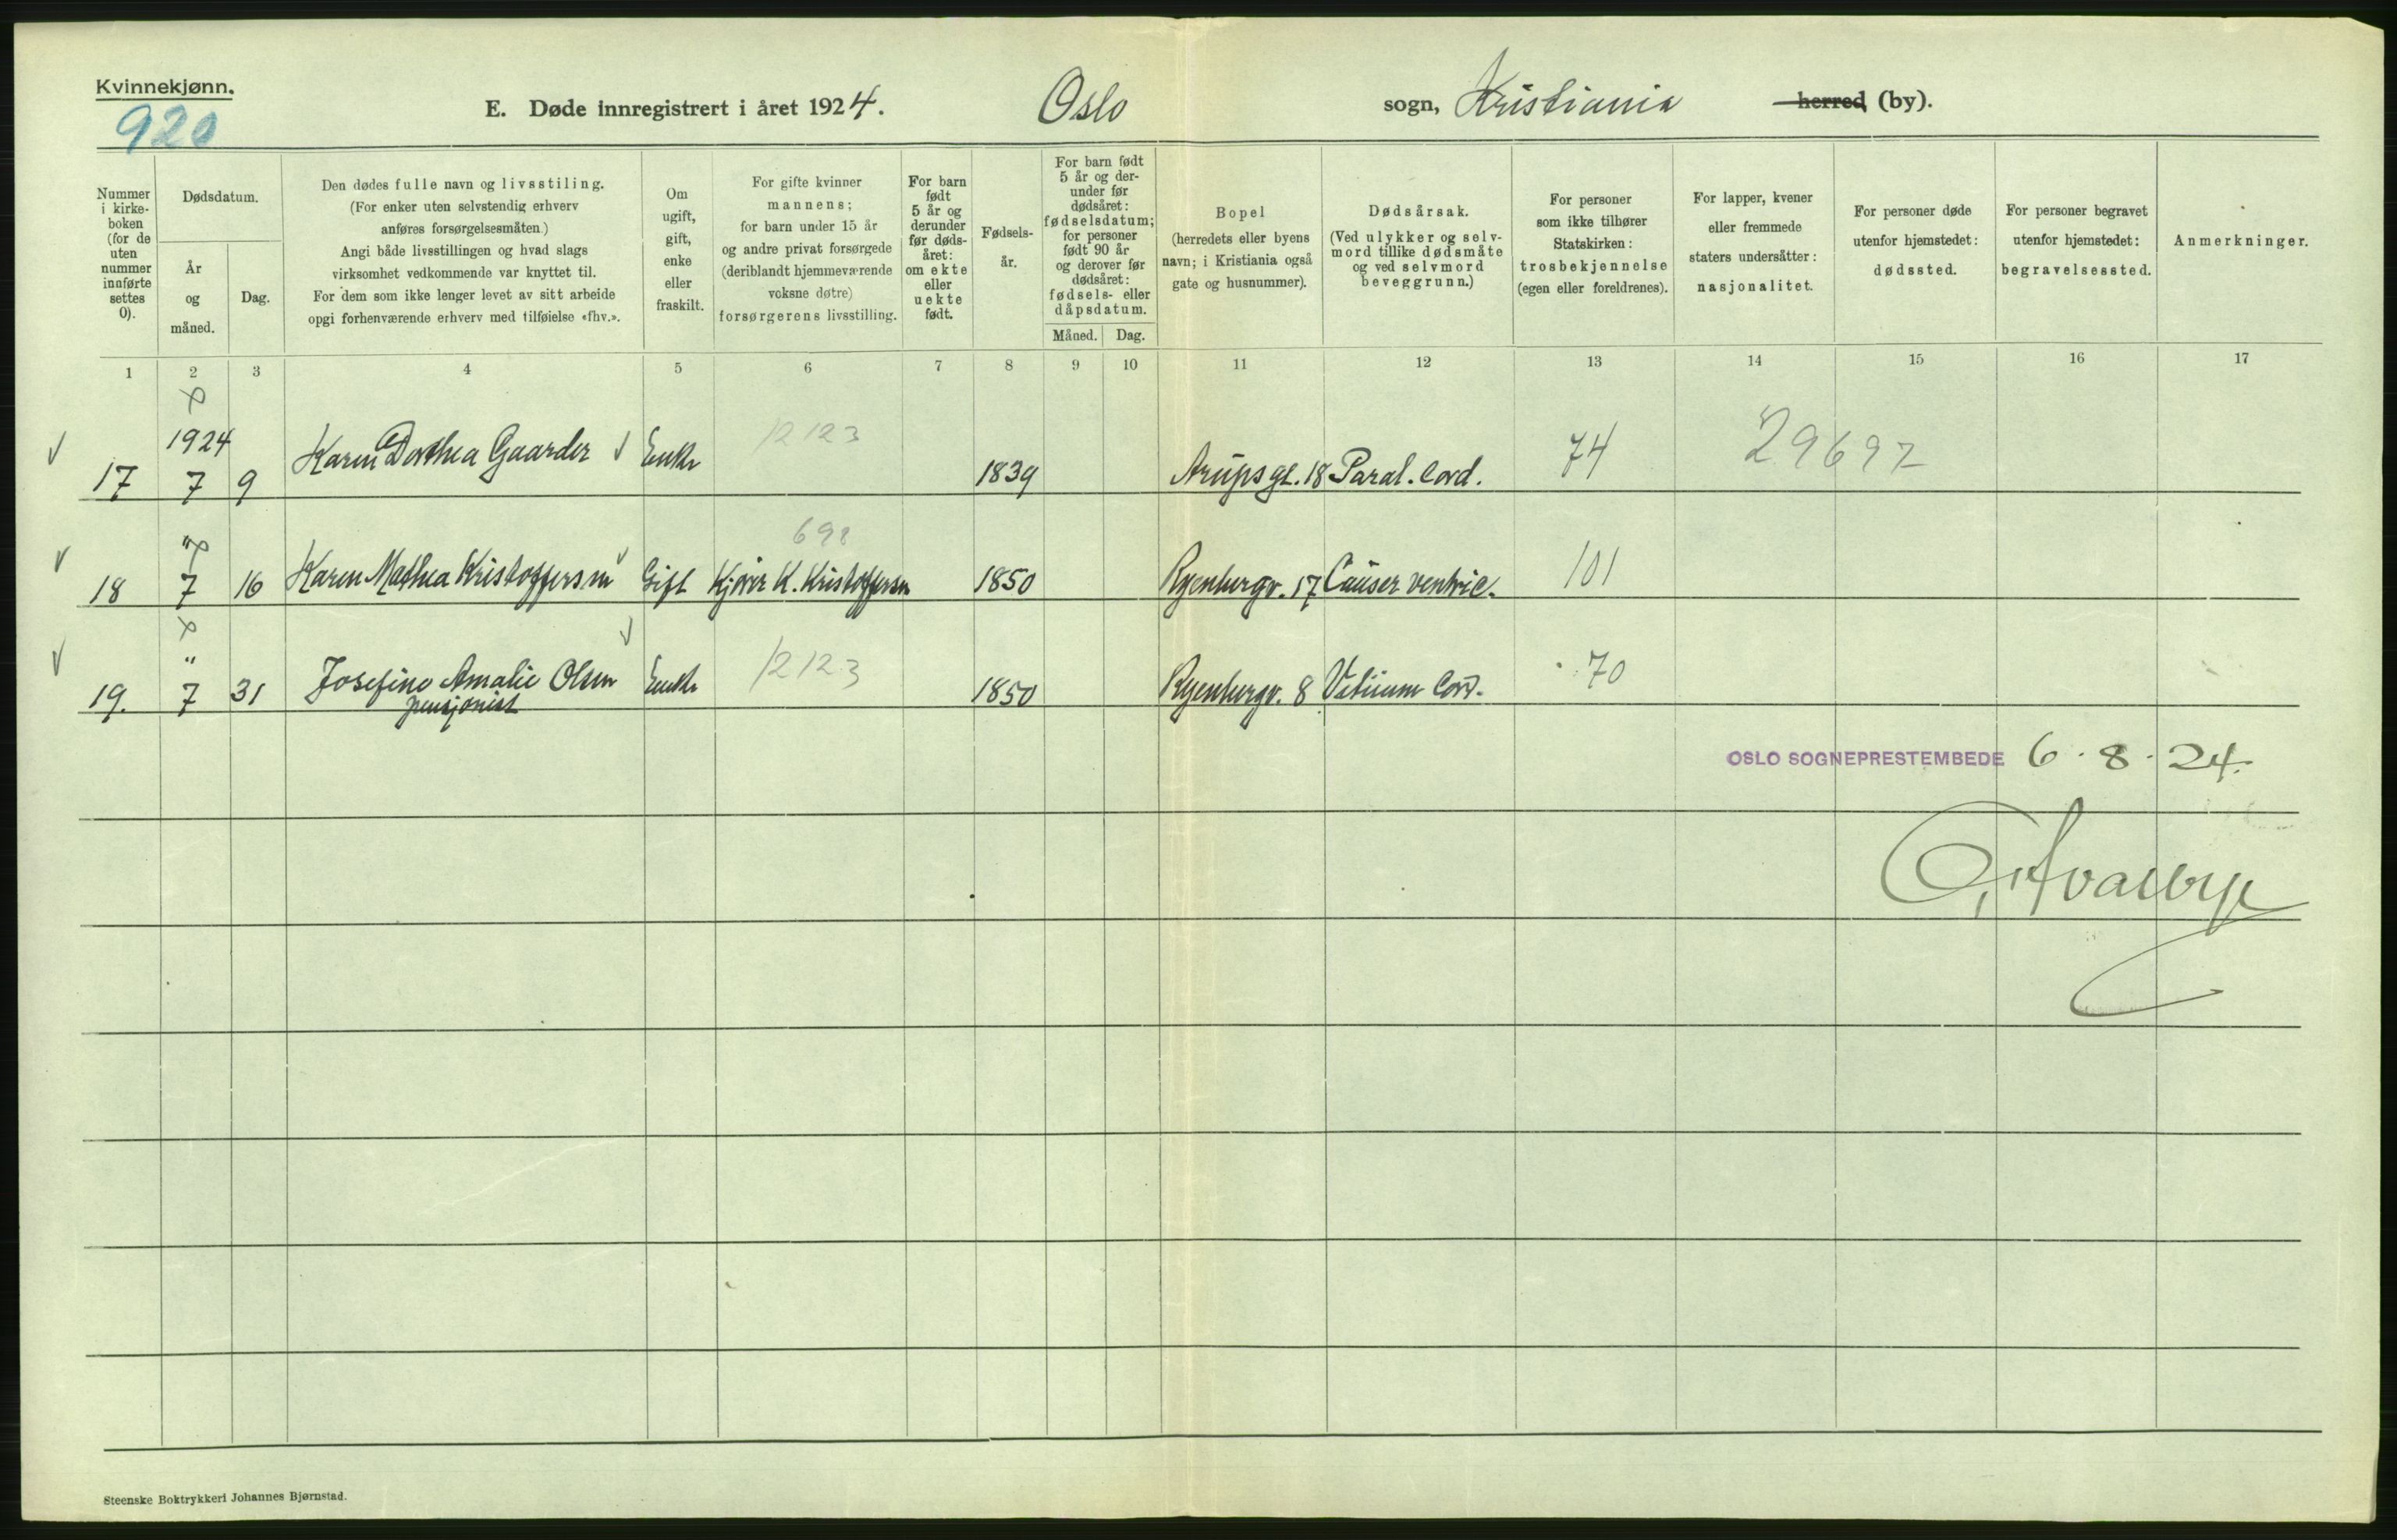 Kvinnekjønn.
920
E. Døde innregistrert i året 1924.
Oslo sogn, Kristiania herred (by).
Nummer i kirke-boken (for de uten nummer innførte settes 0).
Dødsdatum.
År og måned.
Dag.
Den dødes fulle navn og livsstiling.
(For enker uten selvstendig erhverv
anføres forsørgelsesmåten.)
Angi både livsstillingen og hvad slags
virksomhet vedkommende var knyttet til.
For dem som ikke lenger levet av sitt arbeide
opgi forhenværende erhverv med tilføielse «fhv.».
Om
ugift,
gift,
enke
eller
fraskilt.
For gifte kvinner
mannens;
for barn under 15 år
og andre privat forsørgede
(deriblandt hjemmeværende
voksne døtre)
forsørgerens livsstilling.
For barn
født
5 år og
derunder
før døds-
året:
om ekte
eller
uekte
født.
Fødsels-
år.
For barn født
5 år og der-
under før
dødsåret:
fødselsdatum;
for personer
født 90 år
og derover før
dødsåret:
fødsels- eller
dåpsdatum.
Måned. Dag.
Bopel
(herredets eller byens
navn; i Kristiania også
gate og husnummer).
Dødsårsak.
(Ved ulykker og selv-
mord tillike dødsmåte
og ved selvmord
beveggrunn.)
For personer
som ikke tilhører
Statskirken:
trosbekjennelse
(egen eller foreldrenes).
For lapper, kvener
eller fremmede
staters undersåtter:
nasjonalitet.
For personer døde
utenfor hjemstedet:
dødssted.
For personer begravet
utenfor hjemstedet:
begravelsessted.
Anmerkninger.
1 2 3 4 5 6 7 8 9 10 11 12 13 14 15 16 17
1924
17 7 9 Karen Dorthea Gaarder Enke 12123 1839 Arupsgt. 18 Paral. Cord. 74 29692
698
18 " 7 16 Karen Mathea Kristoffersen Gift Kjører K. Kristoffersen 1850 Ryenbergv. 17 Cancer ventric. 101
19. " 7 31 Josefine Amalie Olsen Enke 12123 1850 Ryenbergv. 8 Vitium Cord. 70
pensjonist
OSLO SOGNEPRESTEMBEDE 6.8.24.
Steenske Boktrykkeri Johannes Bjørnstad.